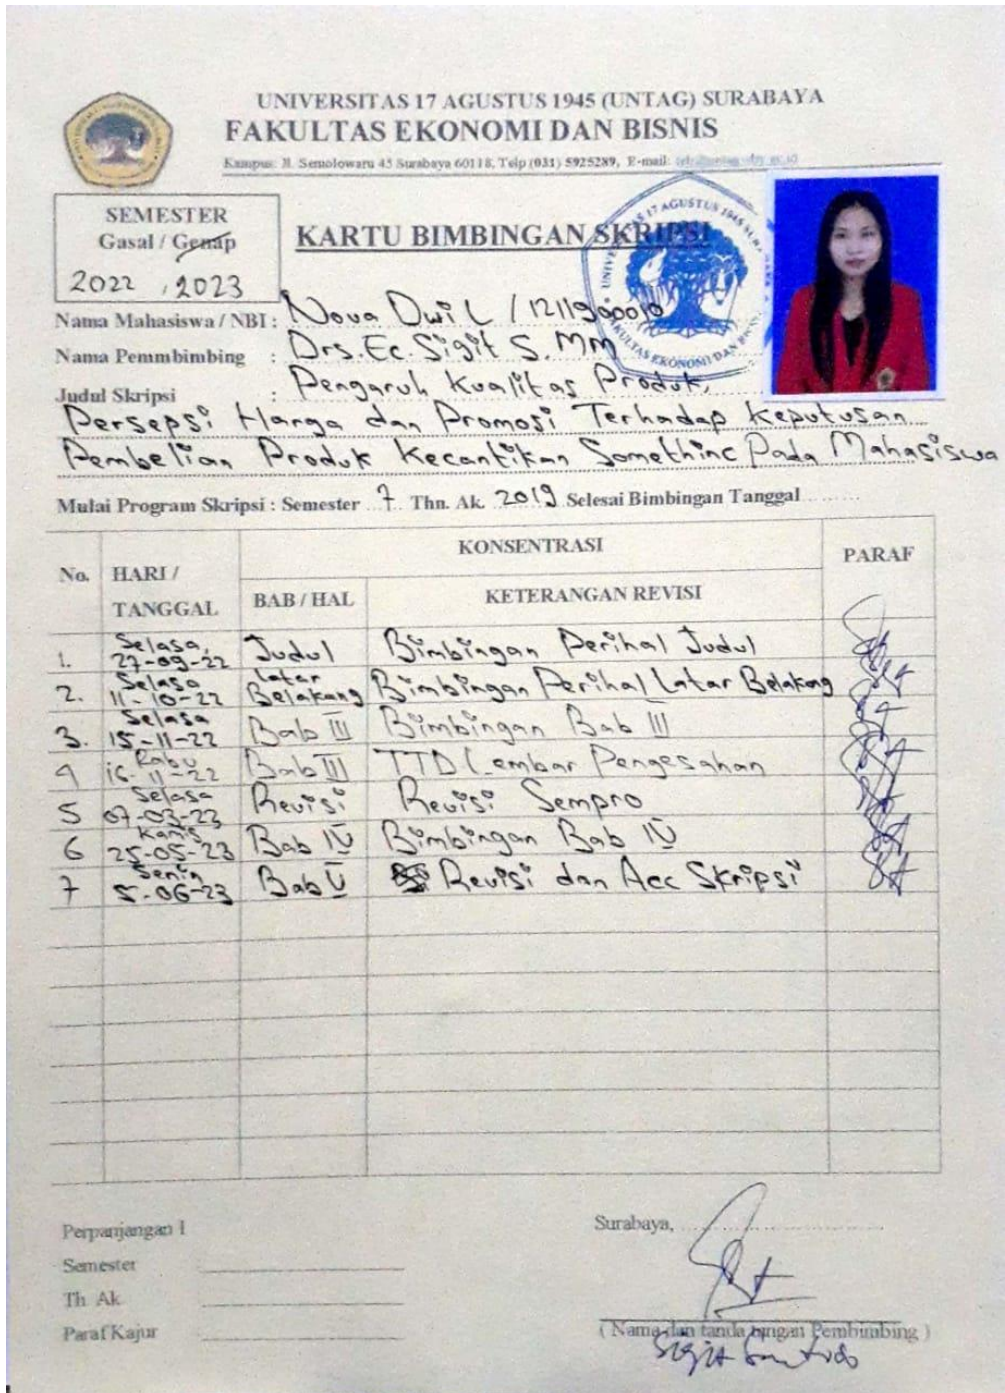 UNIVERSITAS 17 AGUSTUS 1945 (UNTAG) SURABAYA
FAKULTAS EKONOMI DAN BISNIS
Kampus: Jl. Semolowaru 45 Surabaya 60118, Telp (031) 5925289, E-mail:
SEMESTER
Gasal / Genap
2022 , 2023
KARTU BIMBINGAN SKRIPSI
Nama Mahasiswa / NBI : Nova Dwi L /
Nama Pemmbimbing : Drs. Ec. Sigit S. MM
Judul Skripsi : Pengaruh Kualitas Produk,
Persepsi Harga dan Promosi Terhadap Keputusan
Pembelian Produk Kecantikan Somethinc Pada Mahasiswa
Mulai Program Skripsi : Semester 7 Thn. Ak. 2019 Selesai Bimbingan Tanggal
No. HARI / TANGGAL KONSENTRASI PARAF
BAB / HAL KETERANGAN REVISI
1. Selasa, 27-09-22 Judul Bimbingan Perihal Judul
2. Selasa 11-10-22 Latar Belakang Bimbingan Perihal Latar Belakang
3. Selasa 15-11-22 Bab III Bimbingan Bab III
4 Rabu 16-11-22 Bab III TTD Lembar Pengesahan
5 Selasa 07-03-23 Revisi Revisi Sempro
6 Kamis 25-05-23 Bab IV Bimbingan Bab IV
7 Senin 5-06-23 Bab V Revisi dan Acc Skripsi
Perpanjangan I
Semester
Th. Ak
Paraf Kajur
Surabaya,
( Nama dan tanda tangan Pembimbing )
Sigit Santoso